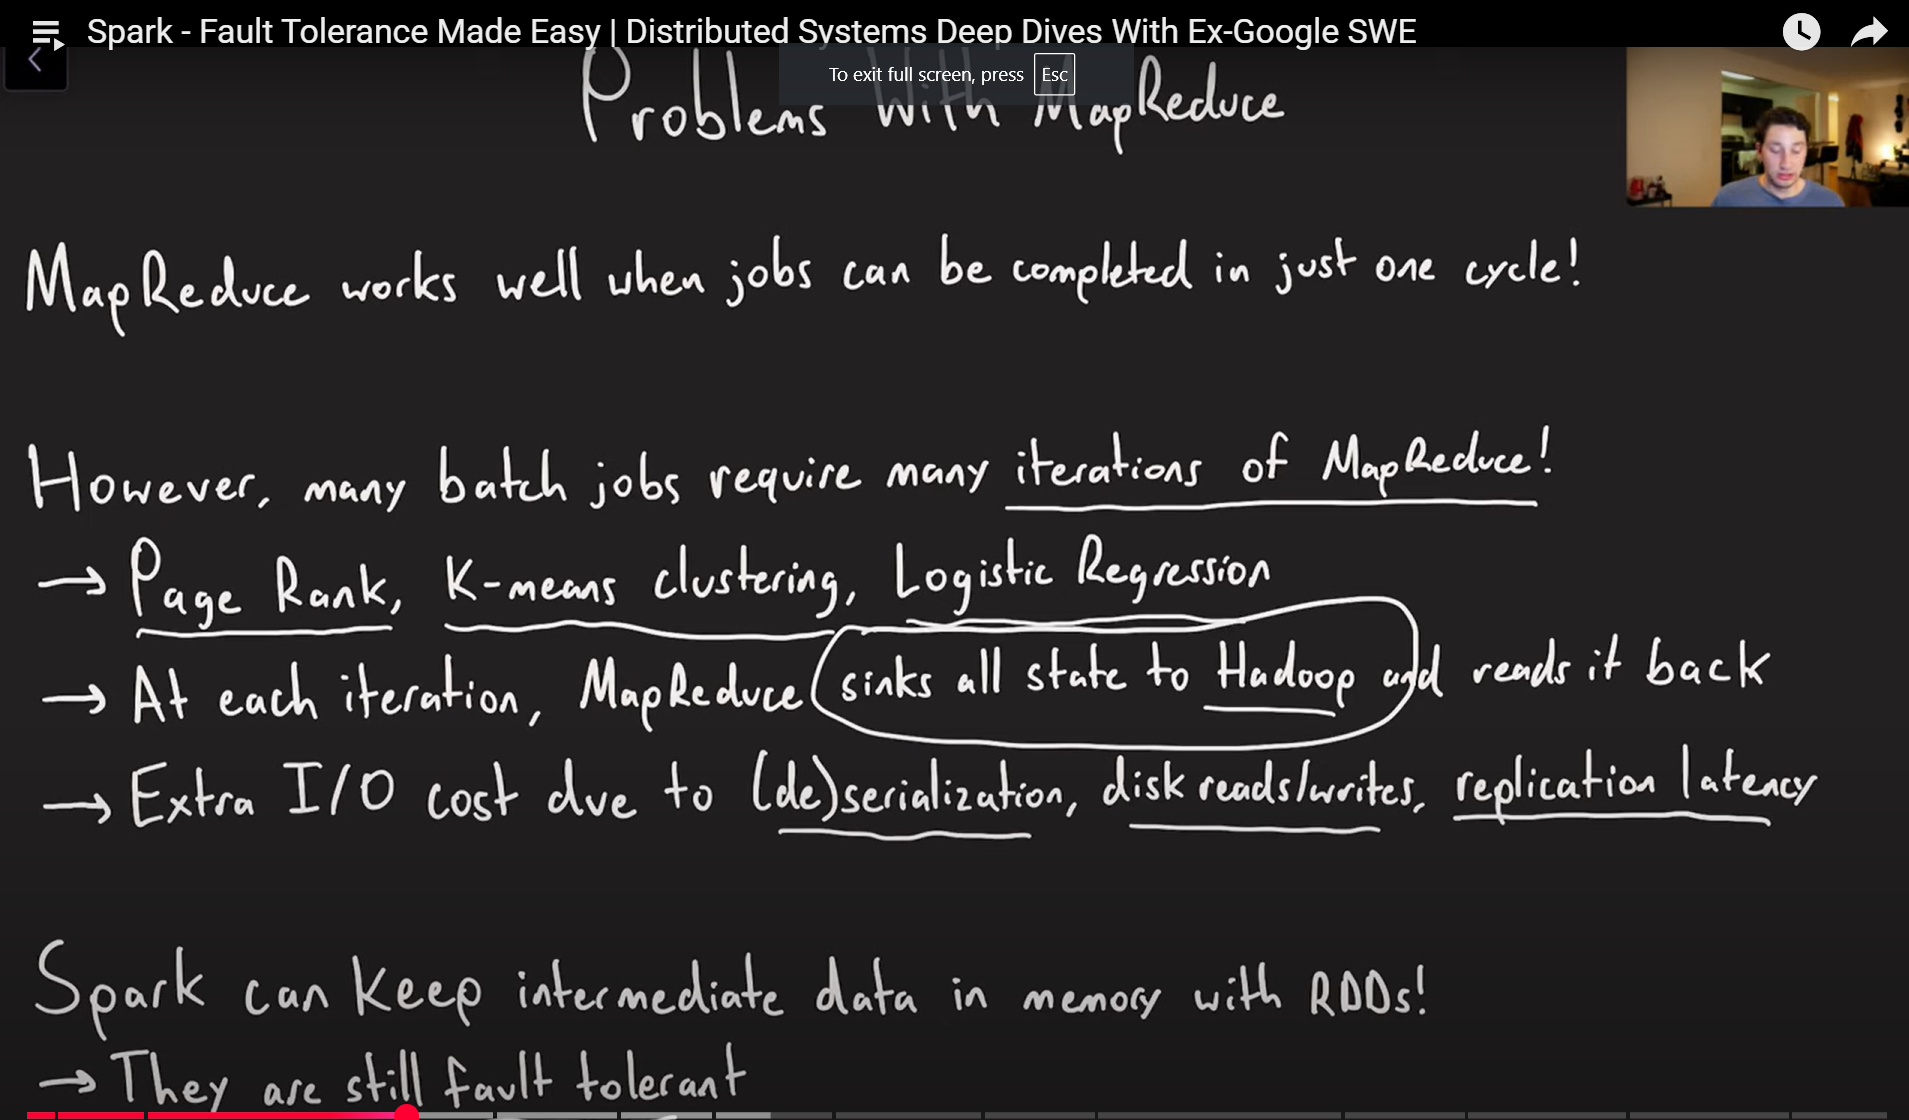 Spark - Fault Tolerance Made Easy | Distributed Systems Deep Dives With Ex-Google SWE
To exit full screen, press Esc
Problems With MapReduce
MapReduce works well when jobs can be completed in just one cycle!
However, many batch jobs require many iterations of MapReduce!
→ Page Rank, K-means clustering, Logistic Regression
→ At each iteration, MapReduce sinks all state to Hadoop and reads it back
→ Extra I/O cost due to (de)serialization, disk reads/writes, replication latency
Spark can keep intermediate data in memory with RDDs!
→ They are still fault tolerant